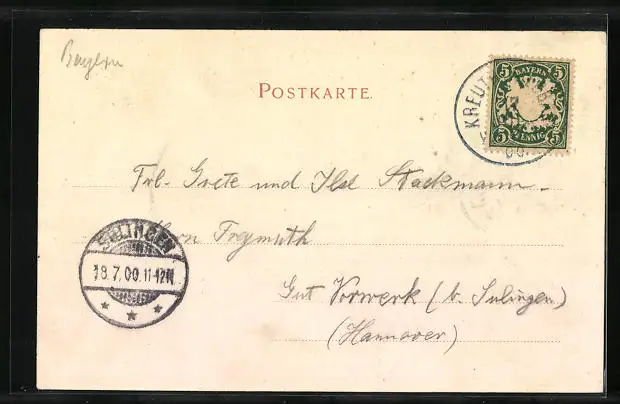 Bayern
POSTKARTE.
KREUT
00
5 BAYERN 5
5 PFENNIG 5
Frl. Grete und Ilse Stackmann
SULINGEN
18.7.00.11-12N.
Gut Vorwerk (b. Sulingen)
(Hannover)